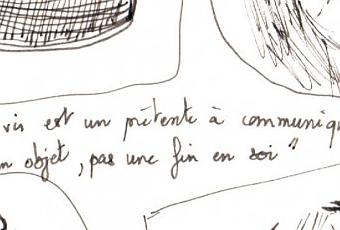 vis est un prétexte à communiqu
n objet, pas une fin en soi"